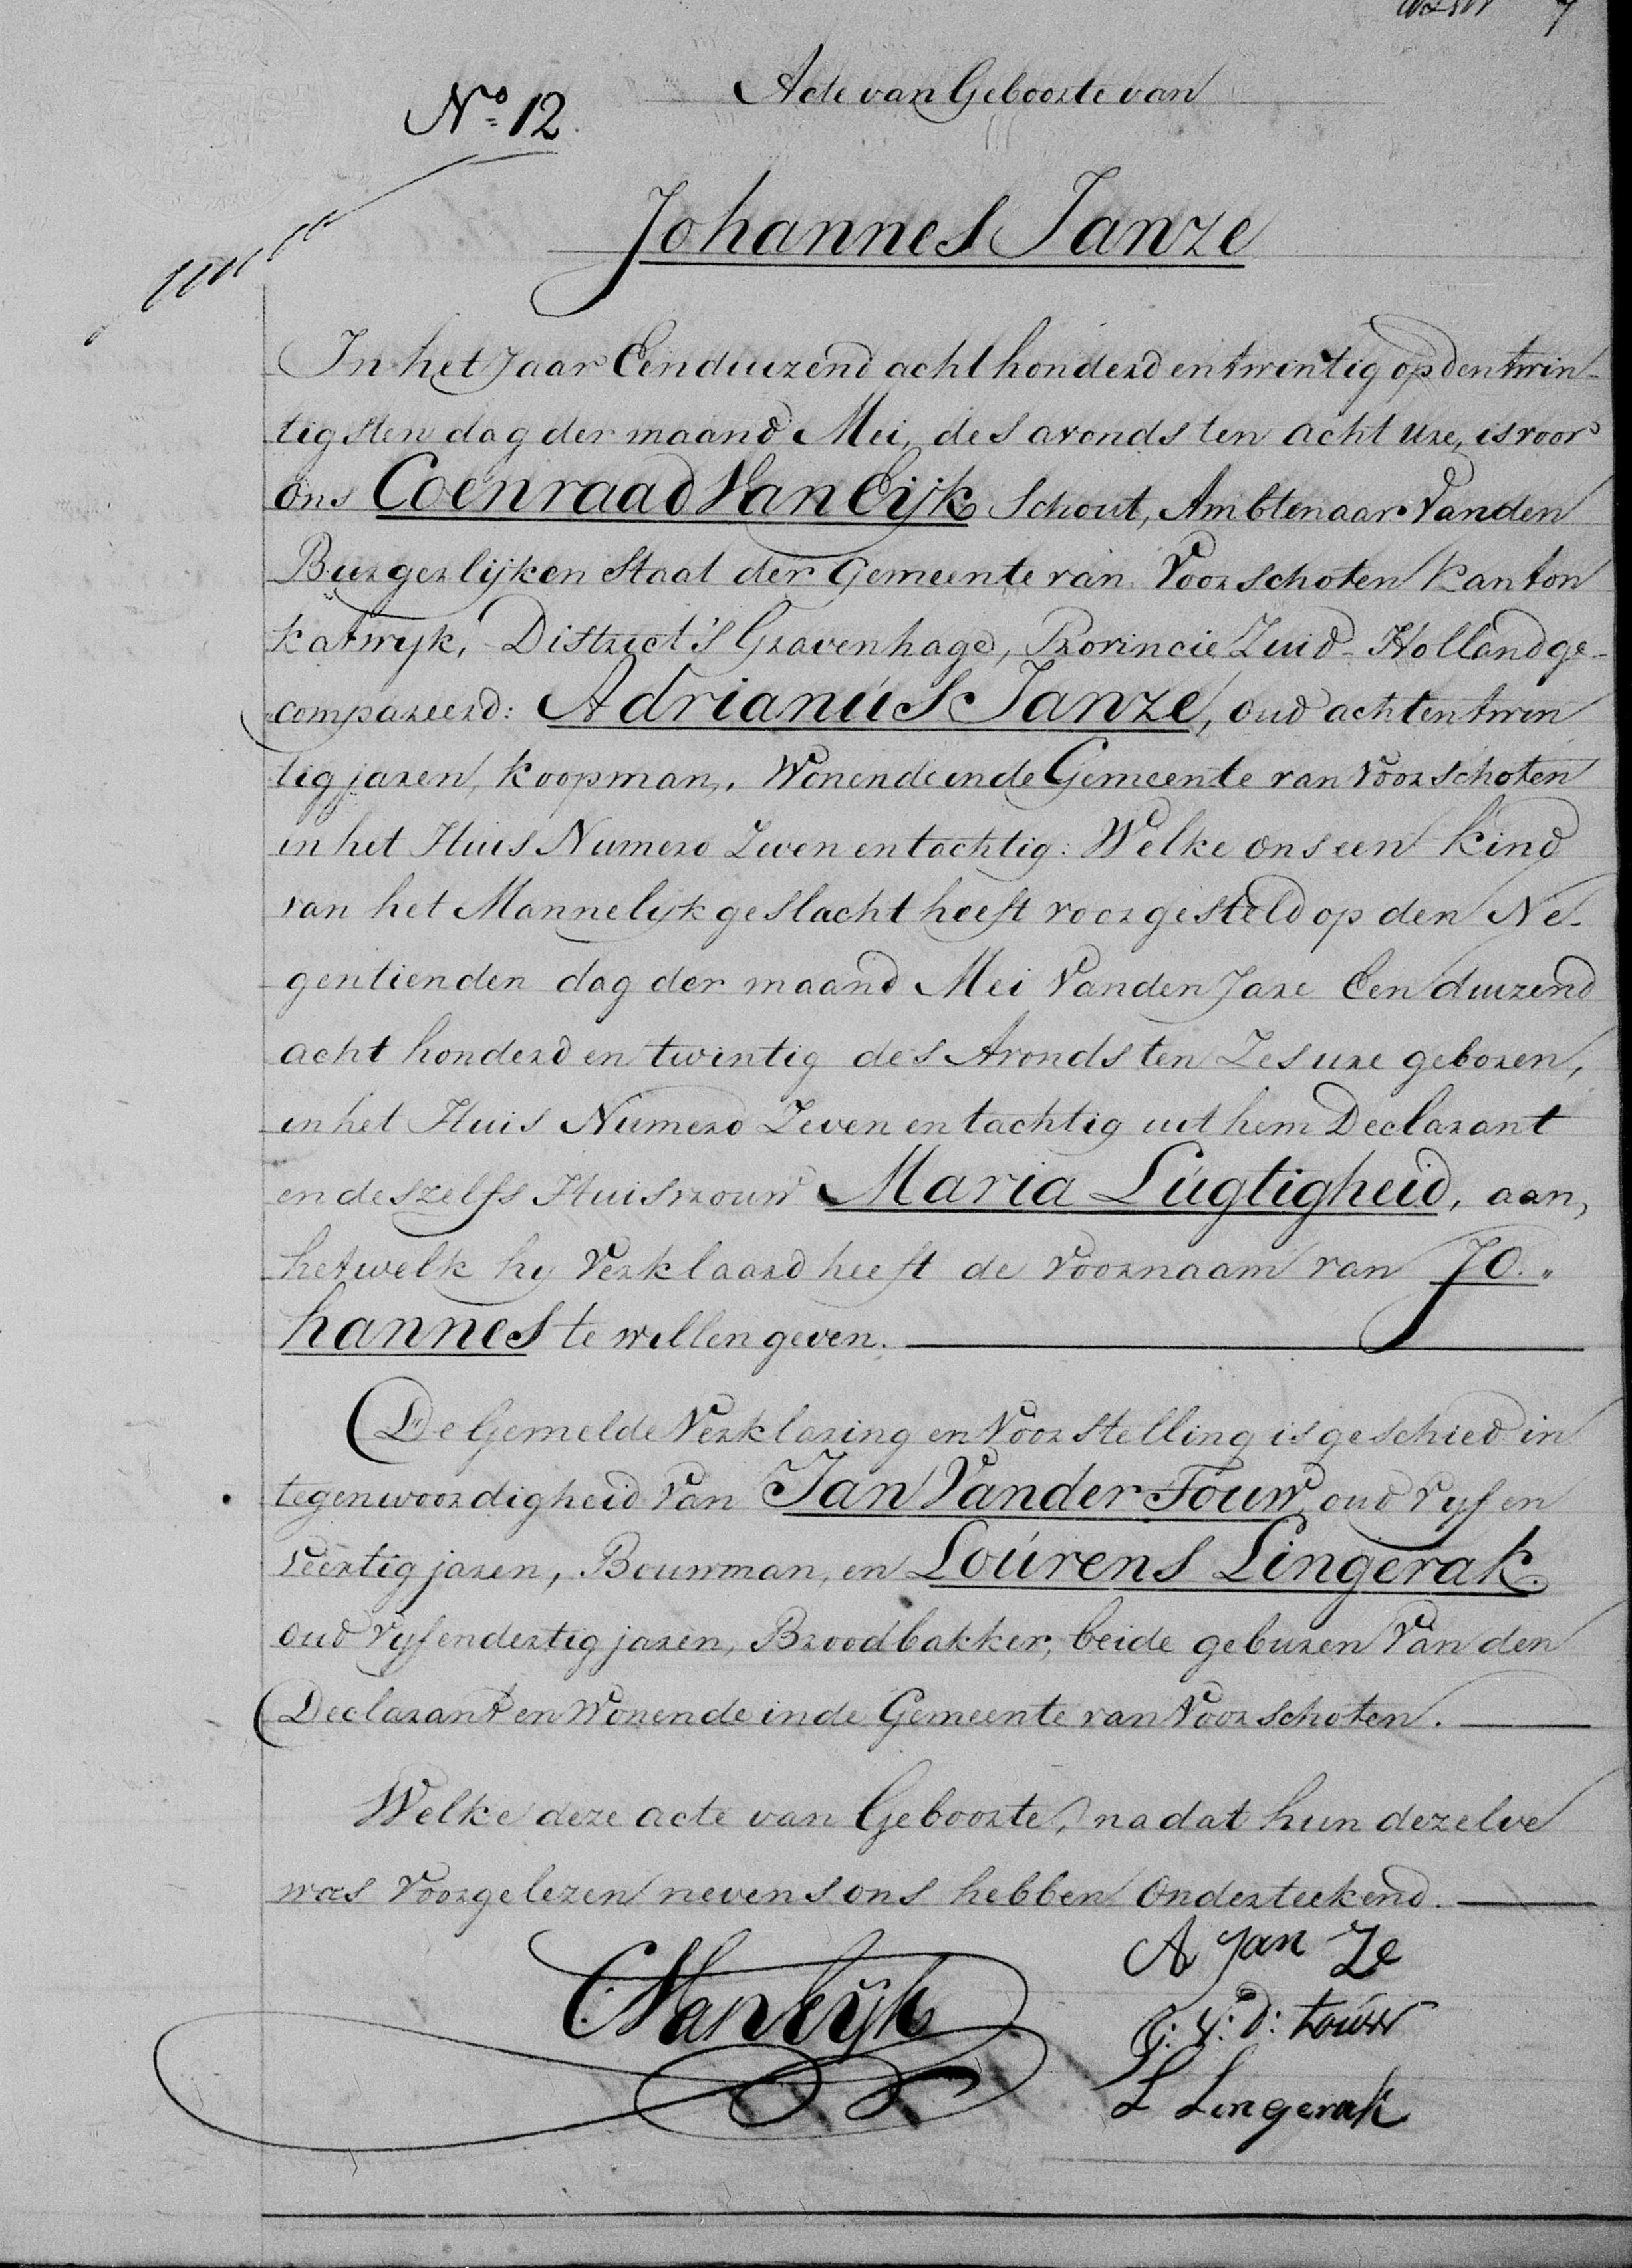 Acte van Geboorte van
No. 12.
Johannes Janze
In het Jaar Eenduizend acht honderd en twintig op den twin-
tigsten dag der maand Mei, des avonds ten acht ure, is voor
ons Coenraad Van Eijk Schout, Ambtenaar Van den
Burgerlijken Staat der Gemeente van Voorschoten Kanton
Katwyk, District 's Gravenhage, Provincie Zuid-Holland ge-
compareerd: Adrianús Janze, oud acht en twin
tig jaren, koopman, Wonende in de Gemeente van Voorschoten
in het Huis Numero Zeven en tachtig: Welke ons een Kind
van het Mannelijk geslacht heeft voorgesteld op den Ne-
gentienden dag der maand Mei Van den Jare Een duizend
acht honderd en twintig des Avonds ten Zes ure geboren,
in het Huis Numero Zeven en tachtig uit hem Declarant
en deszelfs Huisvrouw Maria Lúgtigheid, aan,
hetwelk hy Verklaard heeft de voornaam van Jo„
hannes te willen geven.
De Gemelde Verklaring en Voorstelling is geschied in
tegenwoordigheid Van Jan Vander Touw, oud Vyf en
veertig jaren, Bouwman, en Loúrens Lingerak.
oud Vyf en dertig jaren, Broodbakker, beide geburen Van den
Declarant en Wonende in de Gemeente van Voorschoten.
Welke deze acte van Geboorte, na dat hun dezelve
was Voorgelezen nevens ons hebben Onderteekend.
A Jan Ze
C Van Eijk
J: V: d: touw
L Lingerak